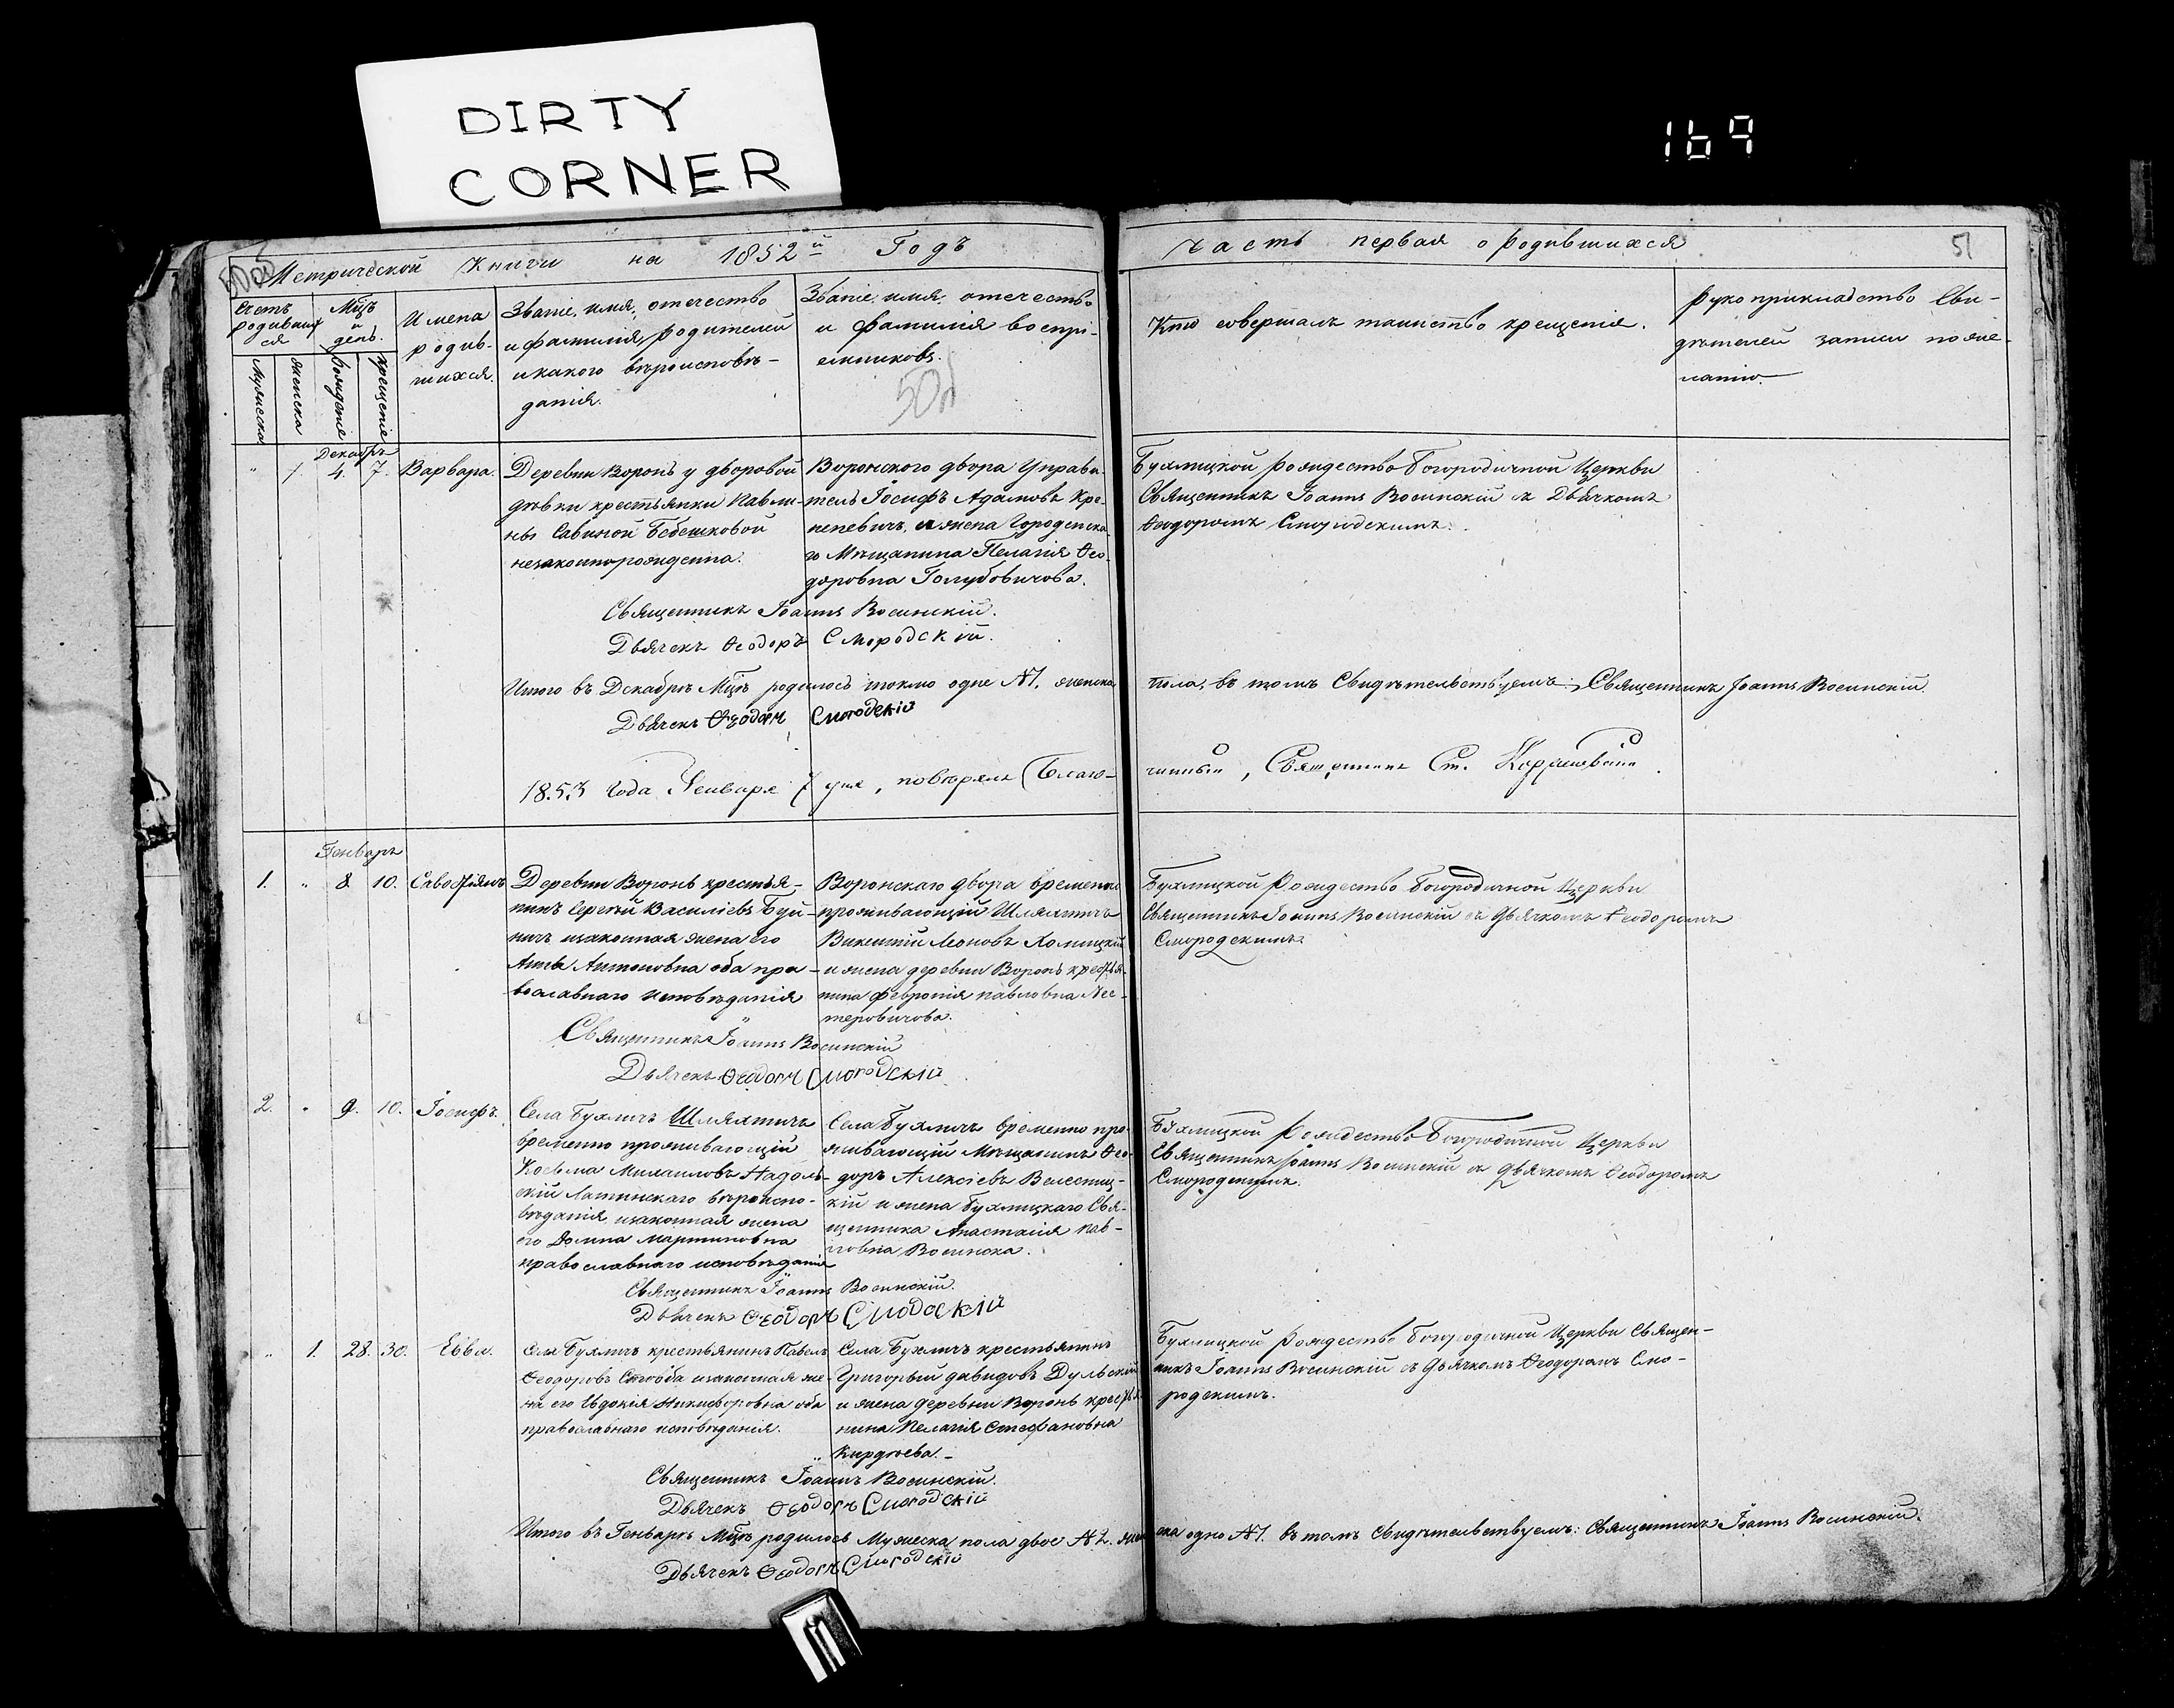 DIRTY
CORNER
169
Метрической Книги на 1852й Годъ
часть первая о родившихся
51
Счетъ родившихся
Мцъ и день.
Имена родив-
шихся.
Званіе, имя, отечество
и фамилія, родителей
и какого вѣроисповѣ-
данія.
Званіе, имя, отечество
и фамилія воспрі-
емниковъ.
50
Кто совершалъ таинство крещенія.
Рукоприкладство сви-
дѣтелей записи по же-
ланію.
Мужеска
женска
рожденіе
крещеніе
Декабрь
" 1. 4. 7. Варвара.
Деревни Воронь у дворовой
дѣвки крестьянки Павли-
ны Савиной Бебешковой
незаконнорожденна.
Воронского двора Управи-
тель Іосифъ Адамовъ Кре-
пепевичъ, и жена Городенска-
го Мѣщанина Пелагія Ѳео-
доровна Голубовичова.
Бухлицкой Рождество Богородичной Церкви
Священникъ Іоаннъ Восинскій съ Дьячкомъ
Ѳеодоромъ Смородскимъ.
Священникъ Іоаннъ Восинскій.
Дьячекъ Ѳеодоръ Смородскій.
Итого въ Декабрѣ Мцѣ родилось токмо одне №1. женска пола, въ томъ Свидѣтельствуемъ: Священникъ Іоаннъ Восинскій.
Дьячекъ Ѳеодоръ Смородскій
1853 года Января 7 дня, повѣрялъ Благо-
чинный, Священникъ Ст.
Генварь
1. " 8. 10. Савостіянъ
Деревни Воронь крестья-
нинъ Сергѣй Василіевъ Буй-
ничъ изаконная жена его
Анна Антоновна оба пра-
вославнаго исповѣданія
Воронскаго двора временно
проживающій Шляхтичъ
Викентій Леоновъ Холицкій
и жена деревни Воронь крестья-
нина Февронія Павловна Нес-
теровичова.
Бухлицкой Рождество Богородичной Церкви
Священникъ Іоаннъ Восинскій съ Дьячкомъ Ѳеодоромъ
Смородскимъ.
Священникъ Іоаннъ Восинскій
Дьячекъ Ѳеодоръ Смородскій
2. " 9. 10. Іосифъ.
Села Бухличъ Шляхтичъ
временно проживающій
Косьма Михаиловъ Надоль-
скій Латинскаго вѣроиспо-
вѣданія, изаконная жена
его Домна Мартиновна
православнаго исповѣданія
Села Бухличъ временно про-
живающій Мѣщанинъ Ѳео-
доръ Алексіевъ Велесниц-
кій и жена Бухлицкаго Свя-
щенника Анастасія Пав-
ловна Восинска.
Бухлицкой Рождество Богородичной Церкви
Священникъ Іоаннъ Восинскій съ Дьячкомъ Ѳеодоромъ
Смородскимъ.
Священникъ Іоаннъ Восинскій.
Дьячекъ Ѳеодоръ Смородскій
" 1. 28. 30. Евва.
Села Бухличъ крестьянинъ Павелъ
Ѳеодоровъ изаконная же-
на его Евдокія Никифоровна оба
православнаго исповѣданія.
Села Бухличъ крестьянинъ
Григорьій Давидовъ Дульскій
и жена деревни Воронь крестья-
нина Пелагія Стефановна
Кирдѣева.
Бухлицкой Рождество Богородичной Церкви Священ-
никъ Іоаннъ Восинскій съ Дьячкомъ Ѳеодоромъ Смо-
родскимъ.
Священникъ Іоаннъ Восинскій.
Дьячекъ Ѳеодоръ Смородскій
Итого въ Генварѣ Мцѣ родилось Мужеска пола двое №2. женска одно №1. въ томъ Свидѣтельствуемъ: Священникъ Іоаннъ Восинскій.
Дьячекъ Ѳеодоръ Смородскій